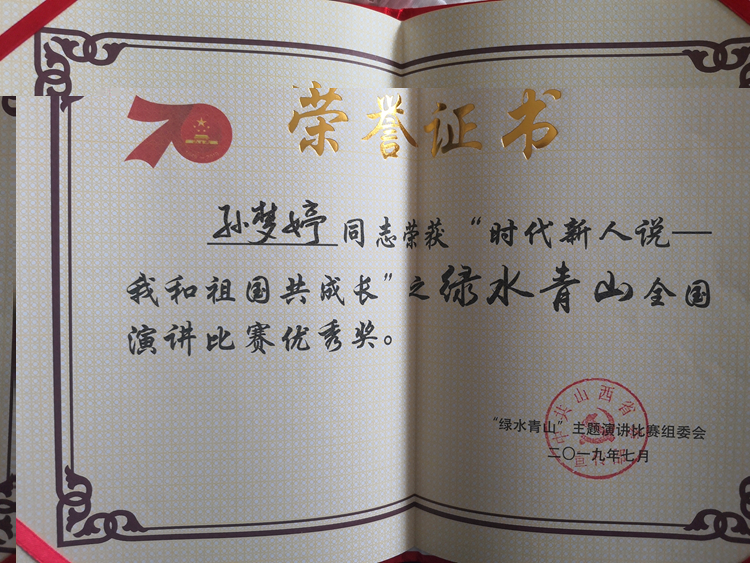 70
荣誉证书
孙梦婷同志荣获“时代新人说——
我和祖国共成长”之绿水青山全国
演讲比赛优秀奖。
中共山西省委
宣传部
“绿水青山”主题演讲比赛组委会
二〇一九年七月